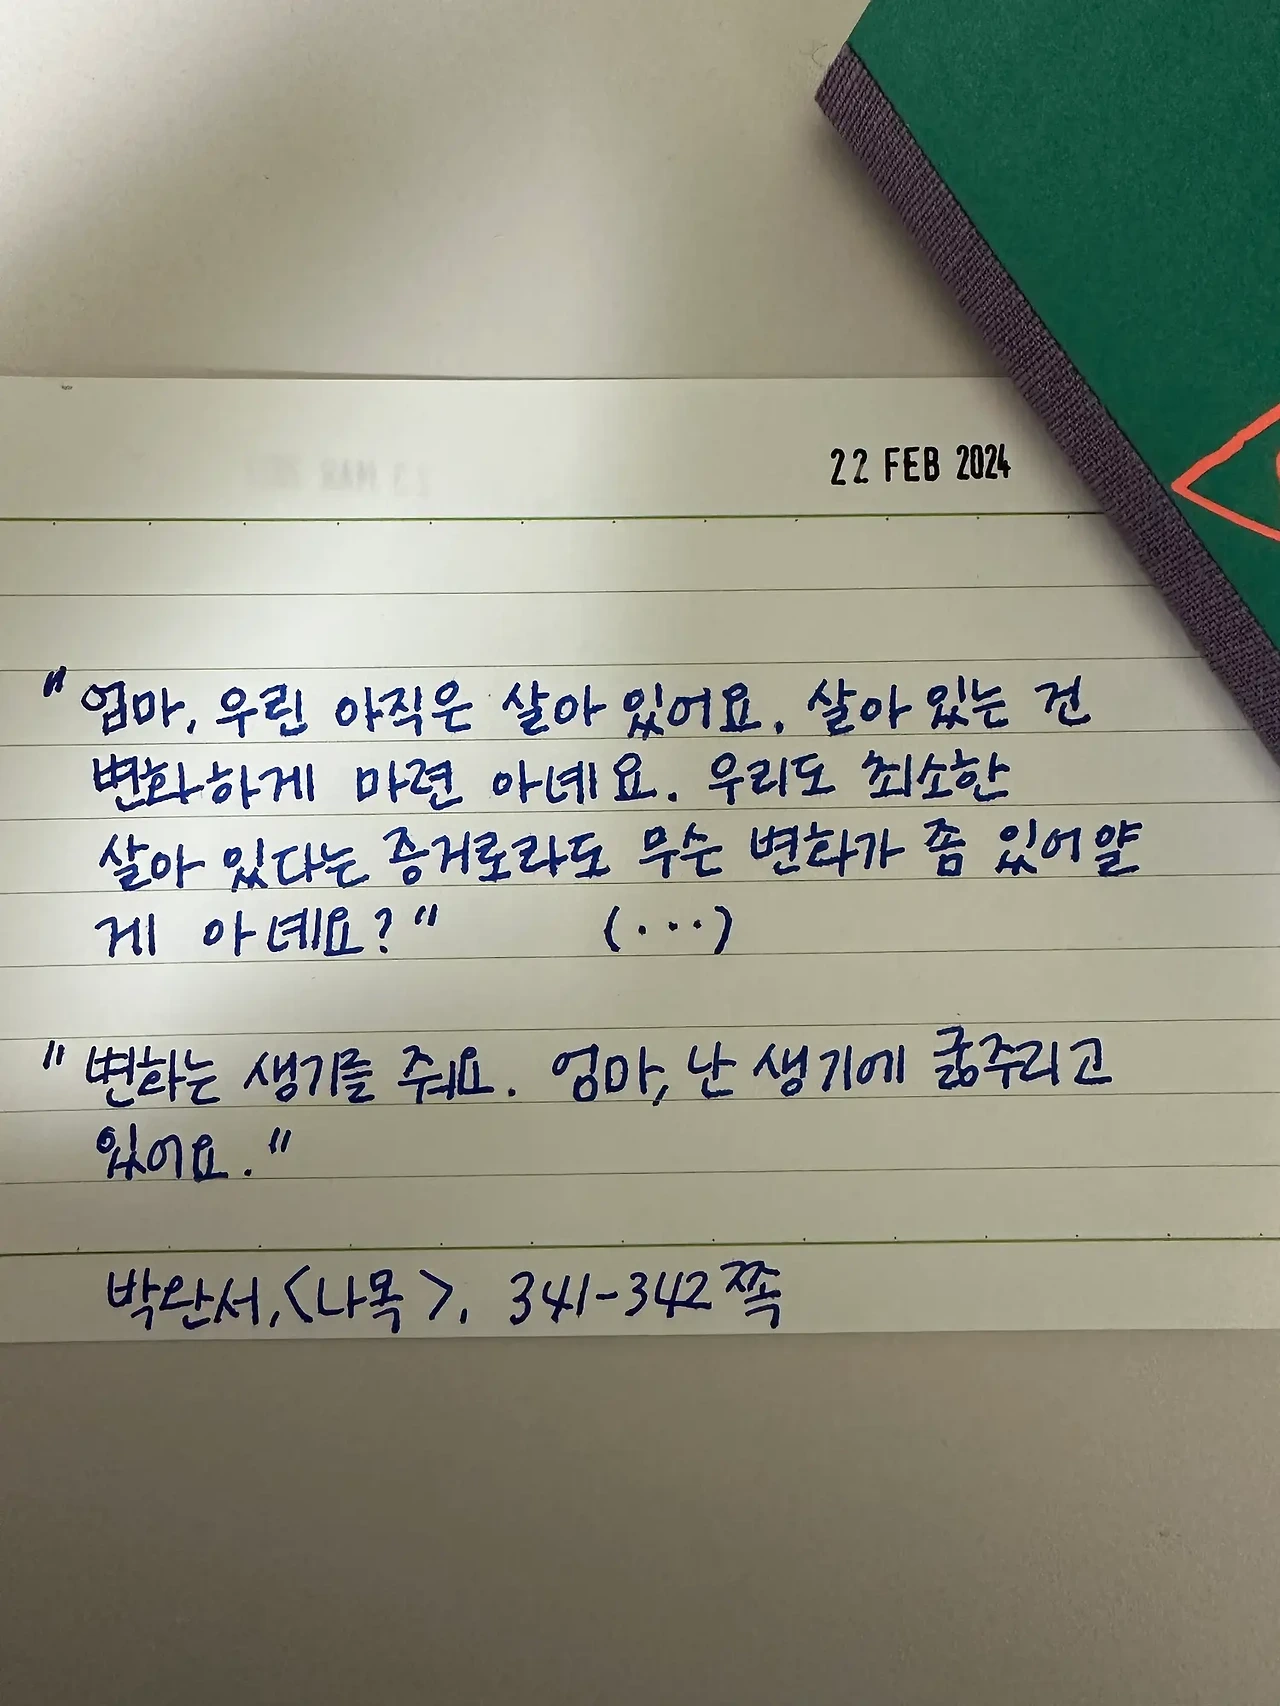 22 FEB 2024
"엄마, 우린 아직은 살아 있어요. 살아 있는 건
변화하게 마련 아녜요. 우리도 최소한
살아 있다는 증거로라도 무슨 변화가 좀 있어얄
게 아녜요?" (···)
"변화는 생기를 줘요. 엄마, 난 생기에 굶주리고
있어요."
박완서, <나목>, 341-342쪽